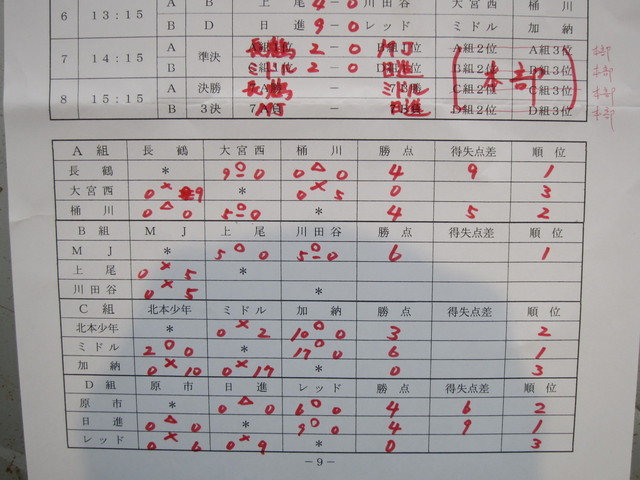 6 13:15 A B 上尾 4-0 川田谷 大宮西 桶川
B D 日進 9-0 レッド ミドル 加納
7 14:15 A 準決 長鶴 2-0 MJ A組2位 A組3位 本部
B ミドル 2-0 日進 B組2位 B組3位 本部
(本部)
8 15:15 A 決勝 長鶴 - ミドル C組2位 C組3位 本部
B 3決 MJ - 日進 D組2位 D組3位 本部
A組 長鶴 大宮西 桶川 勝点 得失点差 順位
長鶴 * 9○0 0△0 4 9 1
大宮西 0×9 * 0×5 0 3
桶川 0△0 5○0 * 4 5 2
B組 MJ 上尾 川田谷 勝点 得失点差 順位
MJ * 5○0 5○0 6 1
上尾 0×5 *
川田谷 0×5 *
C組 北本少年 ミドル 加納 勝点 得失点差 順位
北本少年 * 0×2 10○0 3 2
ミドル 2○0 * 17○0 6 1
加納 0×10 0×17 * 0 3
D組 原市 日進 レッド 勝点 得失点差 順位
原市 * 0△0 6○0 4 6 2
日進 0△0 * 9○0 4 9 1
レッド 0×6 0×9 * 0 3
-9-